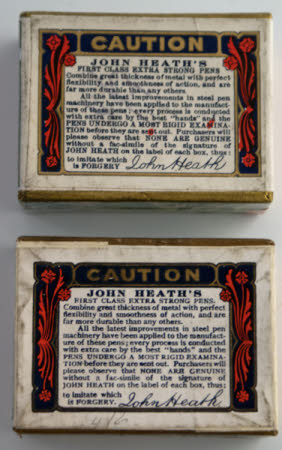 CAUTION
JOHN HEATH'S
FIRST CLASS EXTRA STRONG PENS
Combine great thickness of metal with perfect
flexibility and smoothness of action, and are
far more durable than any others.
All the latest improvements in steel pen
machinery have been applied to the manufact-
ure of these pens; every process is conducted
with extra care by the best "hands" and the
PENS UNDERGO A MOST RIGID EXAMINA-
TION before they are sent out. Purchasers will
please observe that NONE ARE GENUINE
without a fac-simile of the signature of
JOHN HEATH on the label of each box, thus:
to imitate which
is FORGERY John Heath
CAUTION
JOHN HEATH'S
FIRST CLASS EXTRA STRONG PENS.
Combine great thickness of metal with perfect
flexibility and smoothness of action, and are
far more durable than any others.
All the latest improvements in steel pen
machinery have been applied to the manufact-
ure of these pens; every process is conducted
with extra care by the best "hands" and the
PENS UNDERGO A MOST RIGID EXAMINA-
TION before they are sent out. Purchasers will
please observe that NONE ARE GENUINE
without a fac-simile of the signature of
JOHN HEATH on the label of each box, thus:
to imitate which
is FORGERY. John Heath